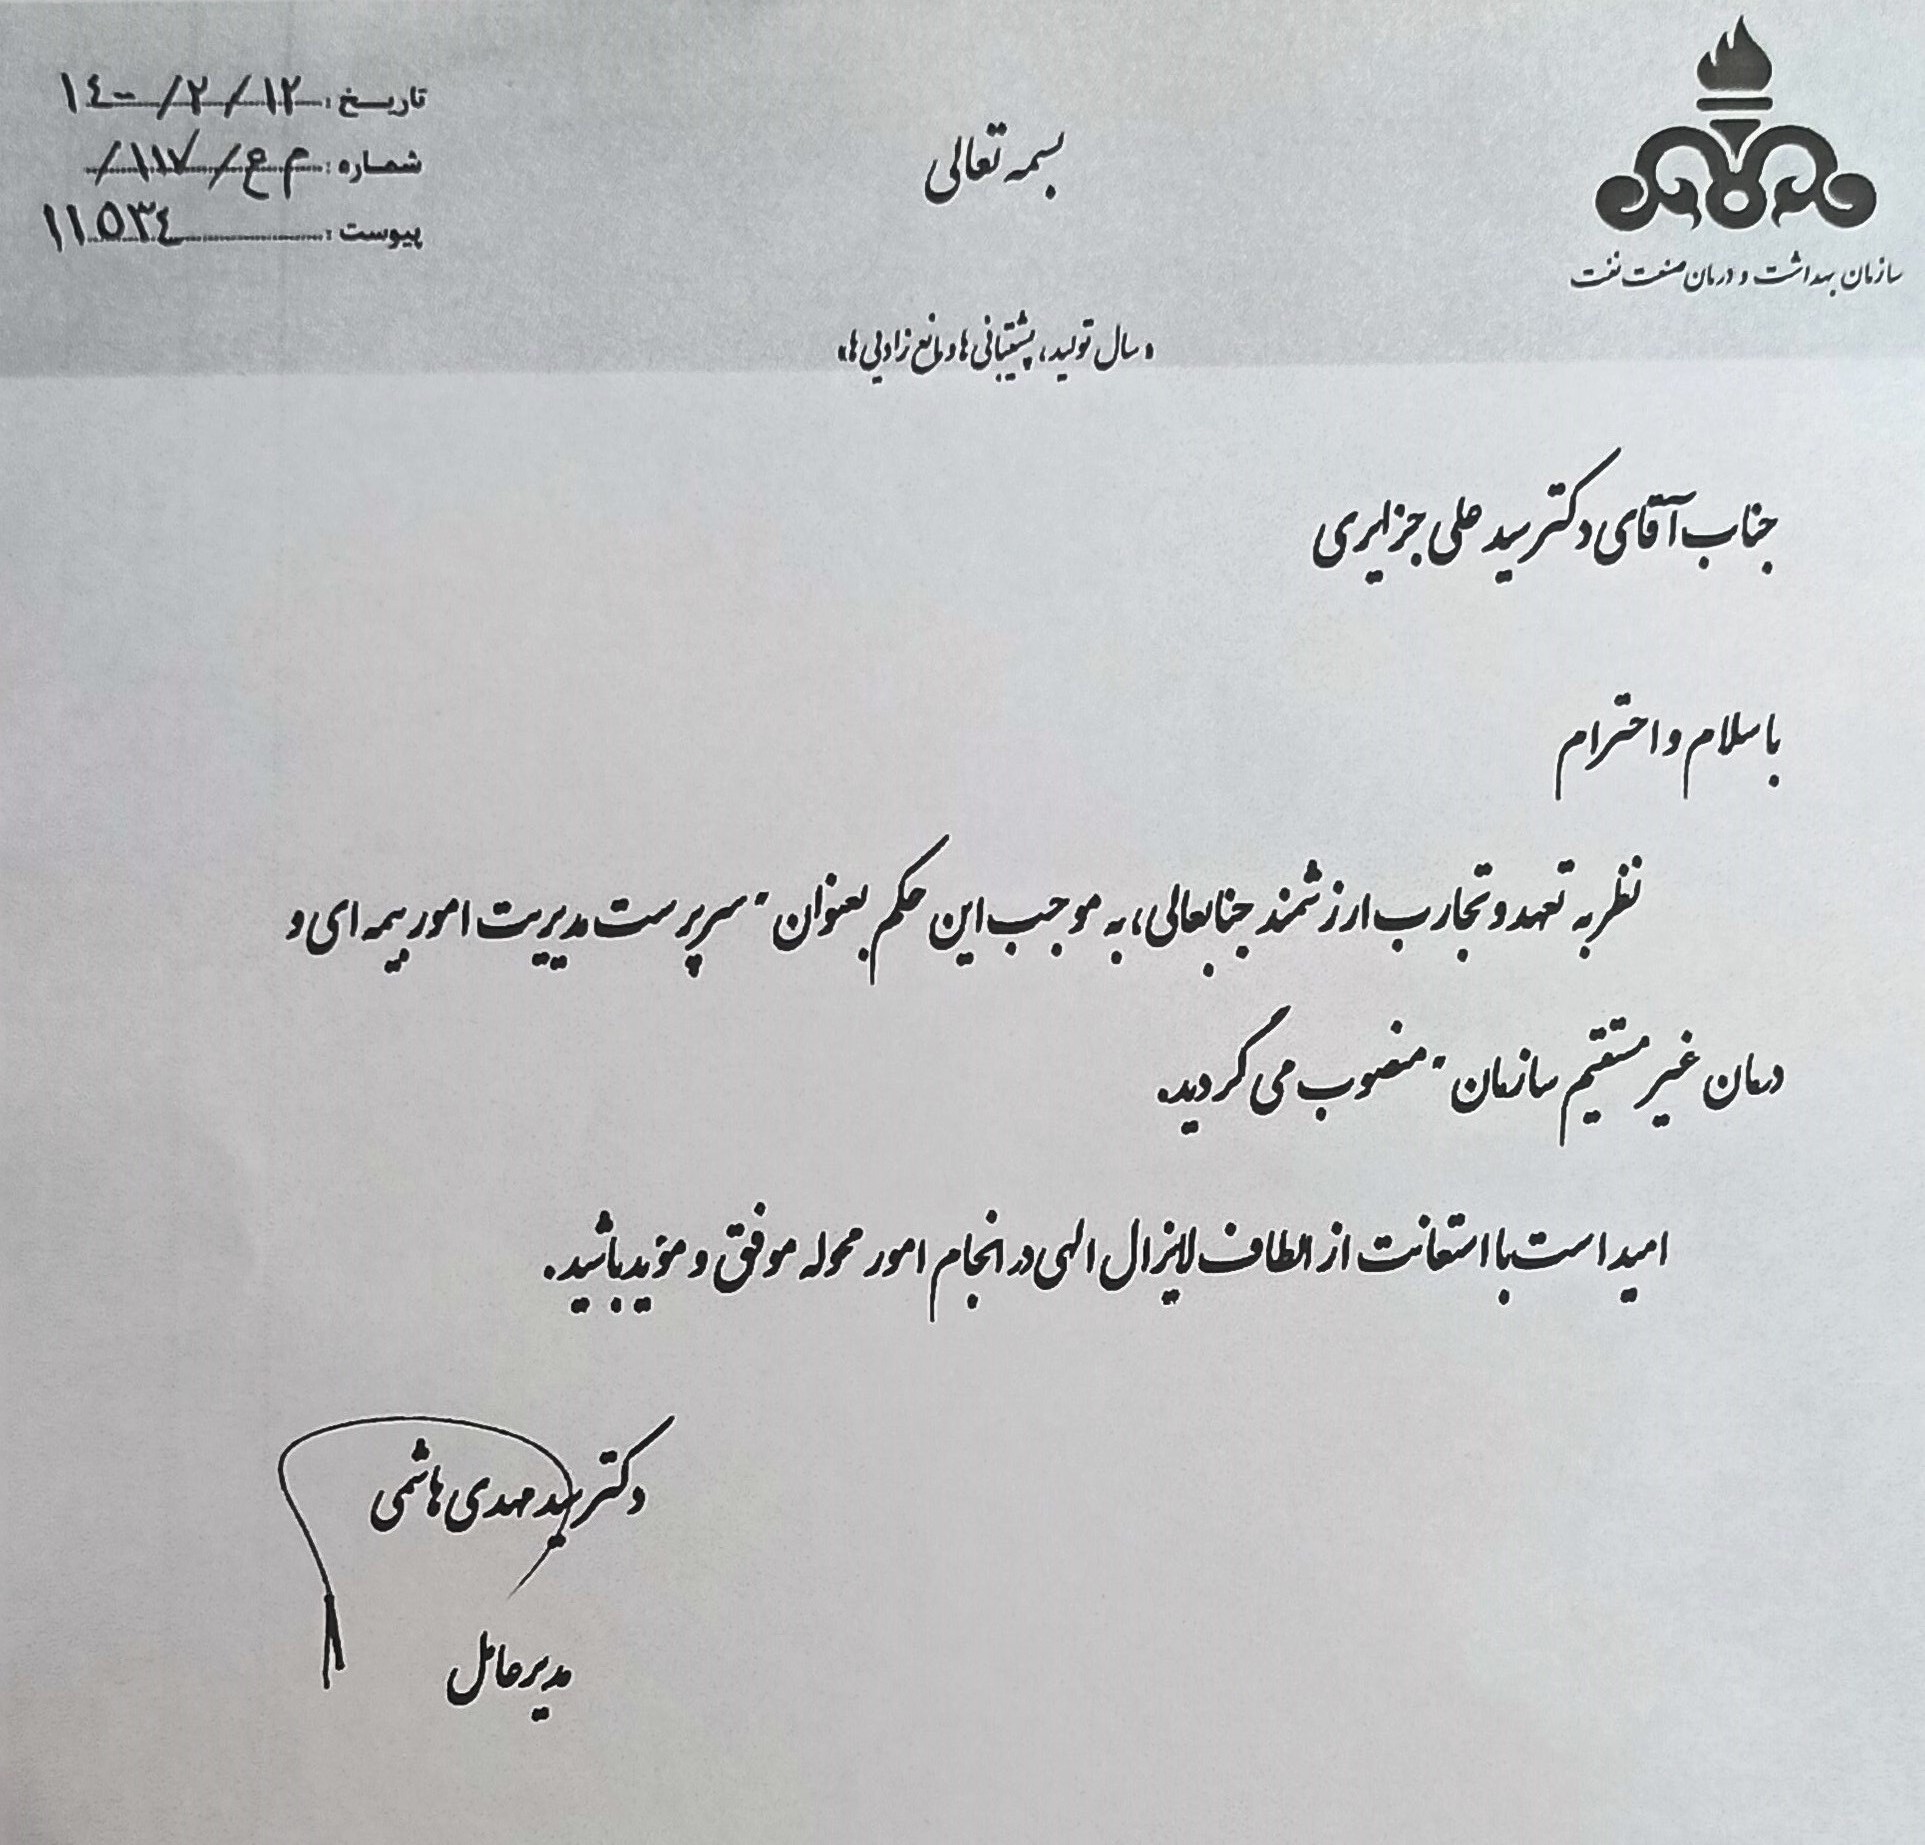 سازمان بهداشت و درمان صنعت نفت
تاریخ: ۱۴۰۰/۲/۱۲
شماره: م ع/۱۱۷/
پیوست: ۱۱۵۳۴
بسمه تعالی
«سال تولید، پشتیبانی ها و مانع زدایی ها»
جناب آقای دکتر سید علی جزایری
با سلام و احترام
نظر به تعهد و تجارب ارزشمند جنابعالی، به موجب این حکم بعنوان " سرپرست مدیریت امور بیمه ای و
درمان غیر مستقیم سازمان " منصوب می گردید.
امید است با استعانت از الطاف لایزال الهی در انجام امور محوله موفق و مؤید باشید.
دکتر سید مهدی هاشمی
مدیرعامل